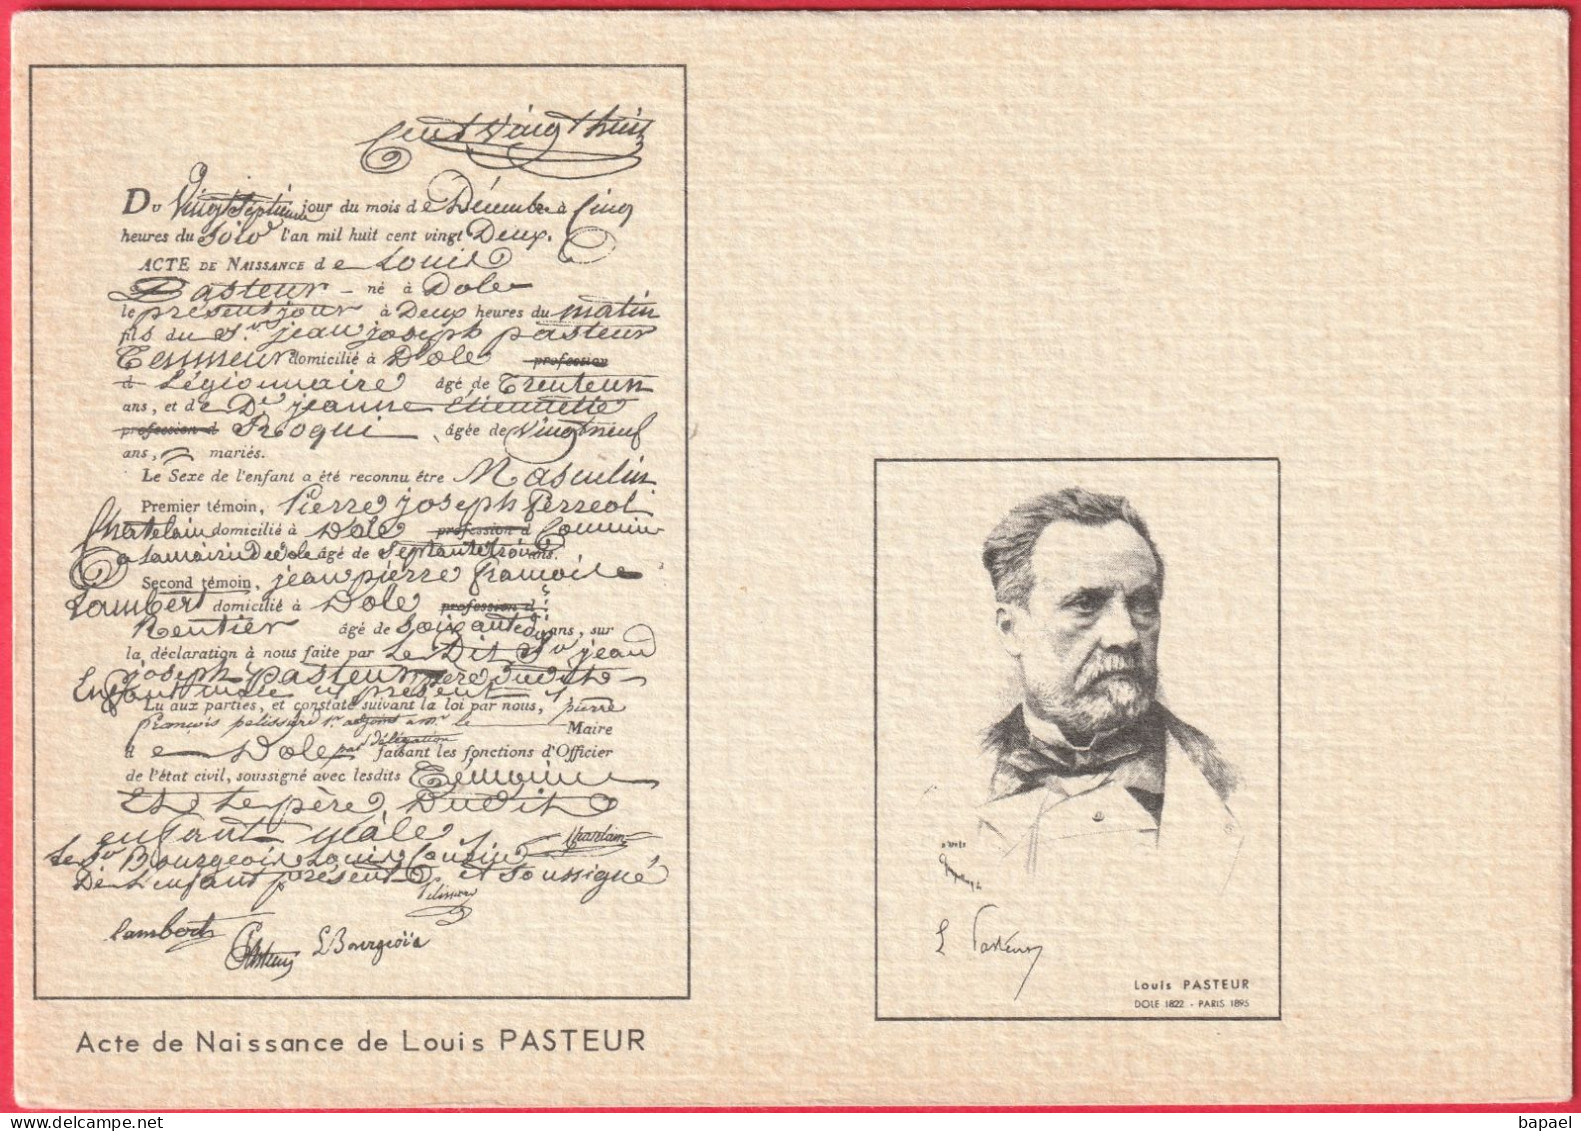 Cent vingt huit
Du Vingt Septième jour du mois de Décembre à Cinq
heures du Soir l'an mil huit cent vingt Deux.
ACTE DE NAISSANCE de Louis
Pasteur né à Dole
le présent jour à Deux heures du matin
fils du Sr. jean joseph pasteur
Tenneur domicilié à Dole profession
d Légionnaire âgé de Trenteun
ans, et de De. jeanne Etiennette
profession d Roqui, âgée de Vingt neuf
ans, mariés.
Le Sexe de l'enfant a été reconnu être Masculin
Premier témoin, Pierre joseph Ferreol
Chatelain domicilié à Dole profession d Commis
a la mairie de dole âgé de Septante trois ans.
Second témoin, jean pierre francois
Lambert domicilié à Dole profession d
Rentier âgé de Soixante ans, sur
la déclaration à nous faite par Le Dit Sr jean
joseph Pasteur père dudit
Enfant male ici présent
Lu aux parties, et constaté suivant la loi par nous, pierre
françois pelissard 1er adjoint a mr le Maire
de Dole par délégation faisant les fonctions d'Officier
de l'état civil, soussigné avec lesdits Témoins
Et Le père Dudit
enfant mâle
Le Sr Bourgeois Louis Cousin Chatelain
De L'enfant présent et soussigné
Pelissard
Lambert Pasteur L Bourgeois
Acte de Naissance de Louis PASTEUR
L Pasteur
Louis PASTEUR
DOLE 1822 - PARIS 1895
bapael